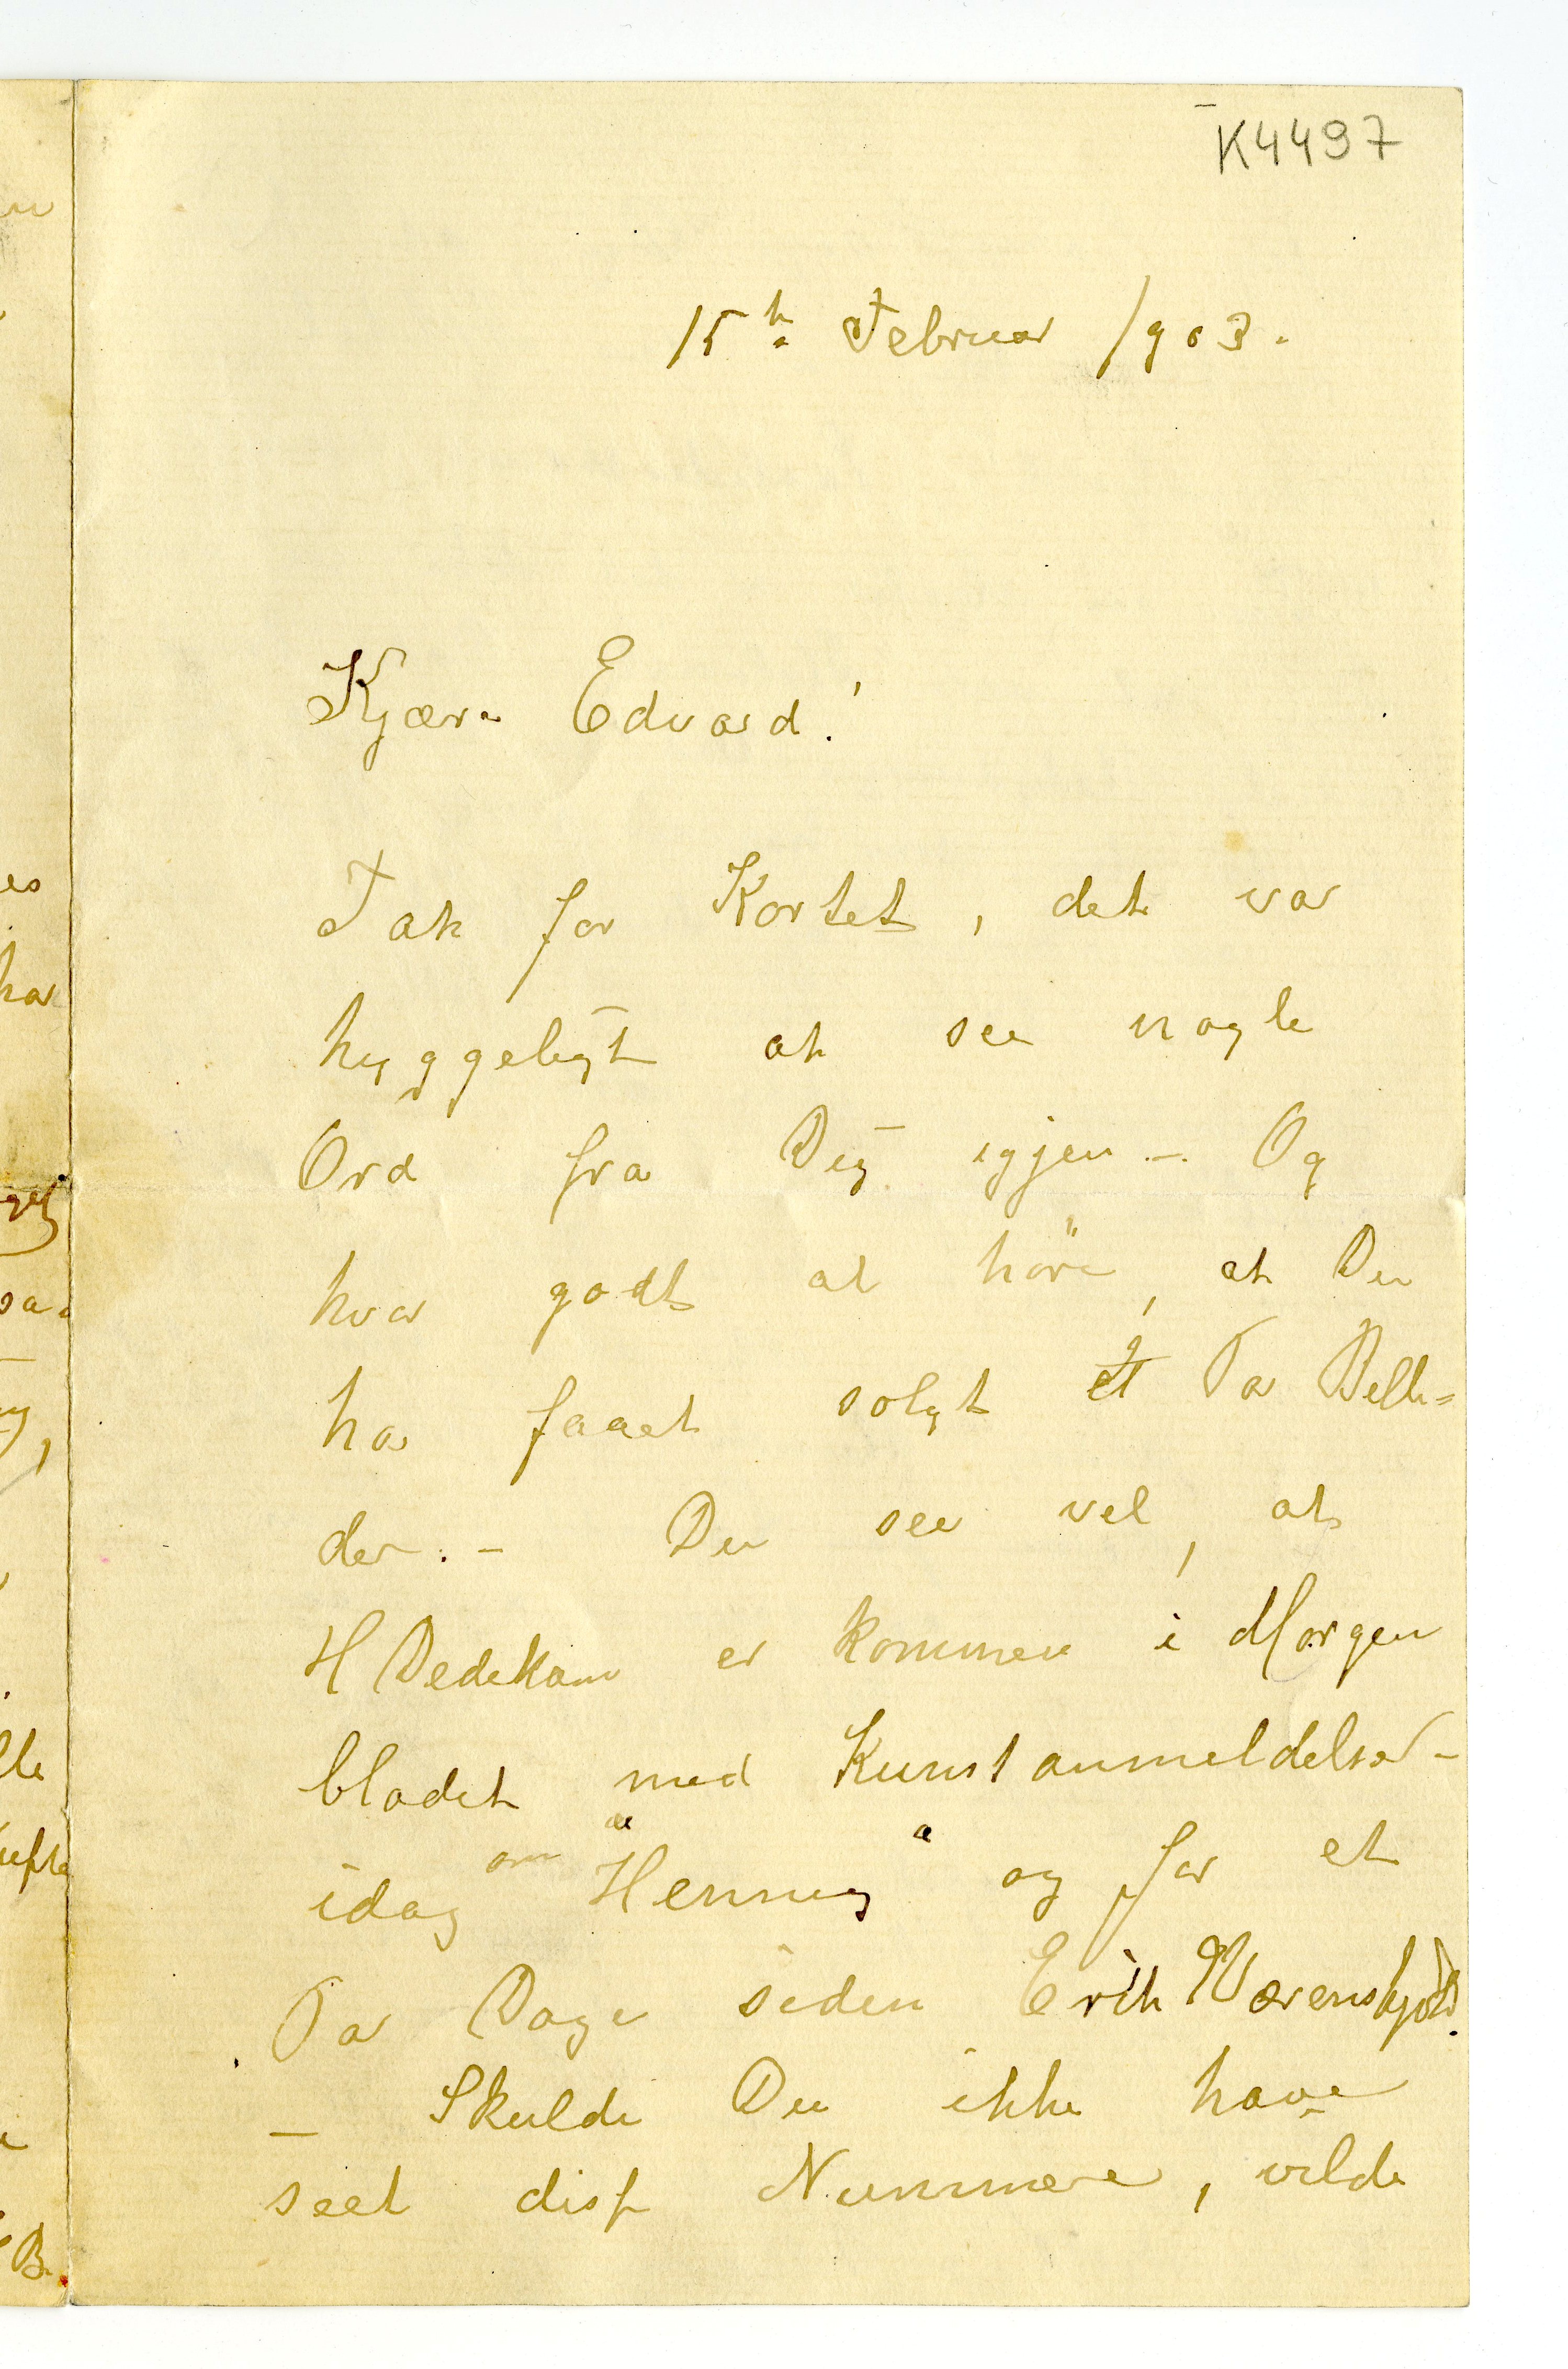 K4497
15de Februar 1903.
Kjære Edvard!
Tak for Kortet, det var
hyggeligt at see nogle
Ord fra Dig igjen. – Og
hvor godt at höre, at Du
har faaet solgt et Par Bille=
der. – Du seer vel, at
H Dedekam er kommen i Morgen
bladet med Kunstanmeldelser –
idag om "Henning" og for et
Par Dage siden Erik Wærenskjold.
– Skulde Du ikke have
seet disse Nummere, vilde